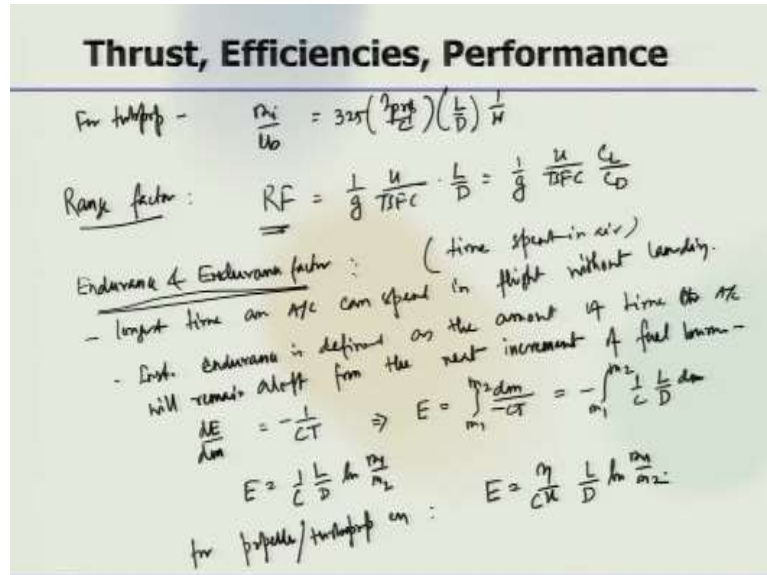 Thrust, Efficiencies, Performance
For turboprop - mi/U0 = 325 (ηprop/C) (L/D) 1/W
Range factor : RF = 1/g u/TSFC · L/D = 1/g u/TSFC CL/CD
Endurance & Endurance factor : (time spent in air)
- longest time an A/C can spend in flight without landing.
- Inst. endurance is defined as the amount of time the A/C
will remain aloft from the next increment of fuel burn -
dE/dm = -1/CT ⇒ E = ∫m1^m2 dm/-CT = -∫m1^m2 1/C L/D dm
E = 1/C L/D ln m1/m2
for propeller/turboprop en : E = η/Cu L/D ln m1/m2.